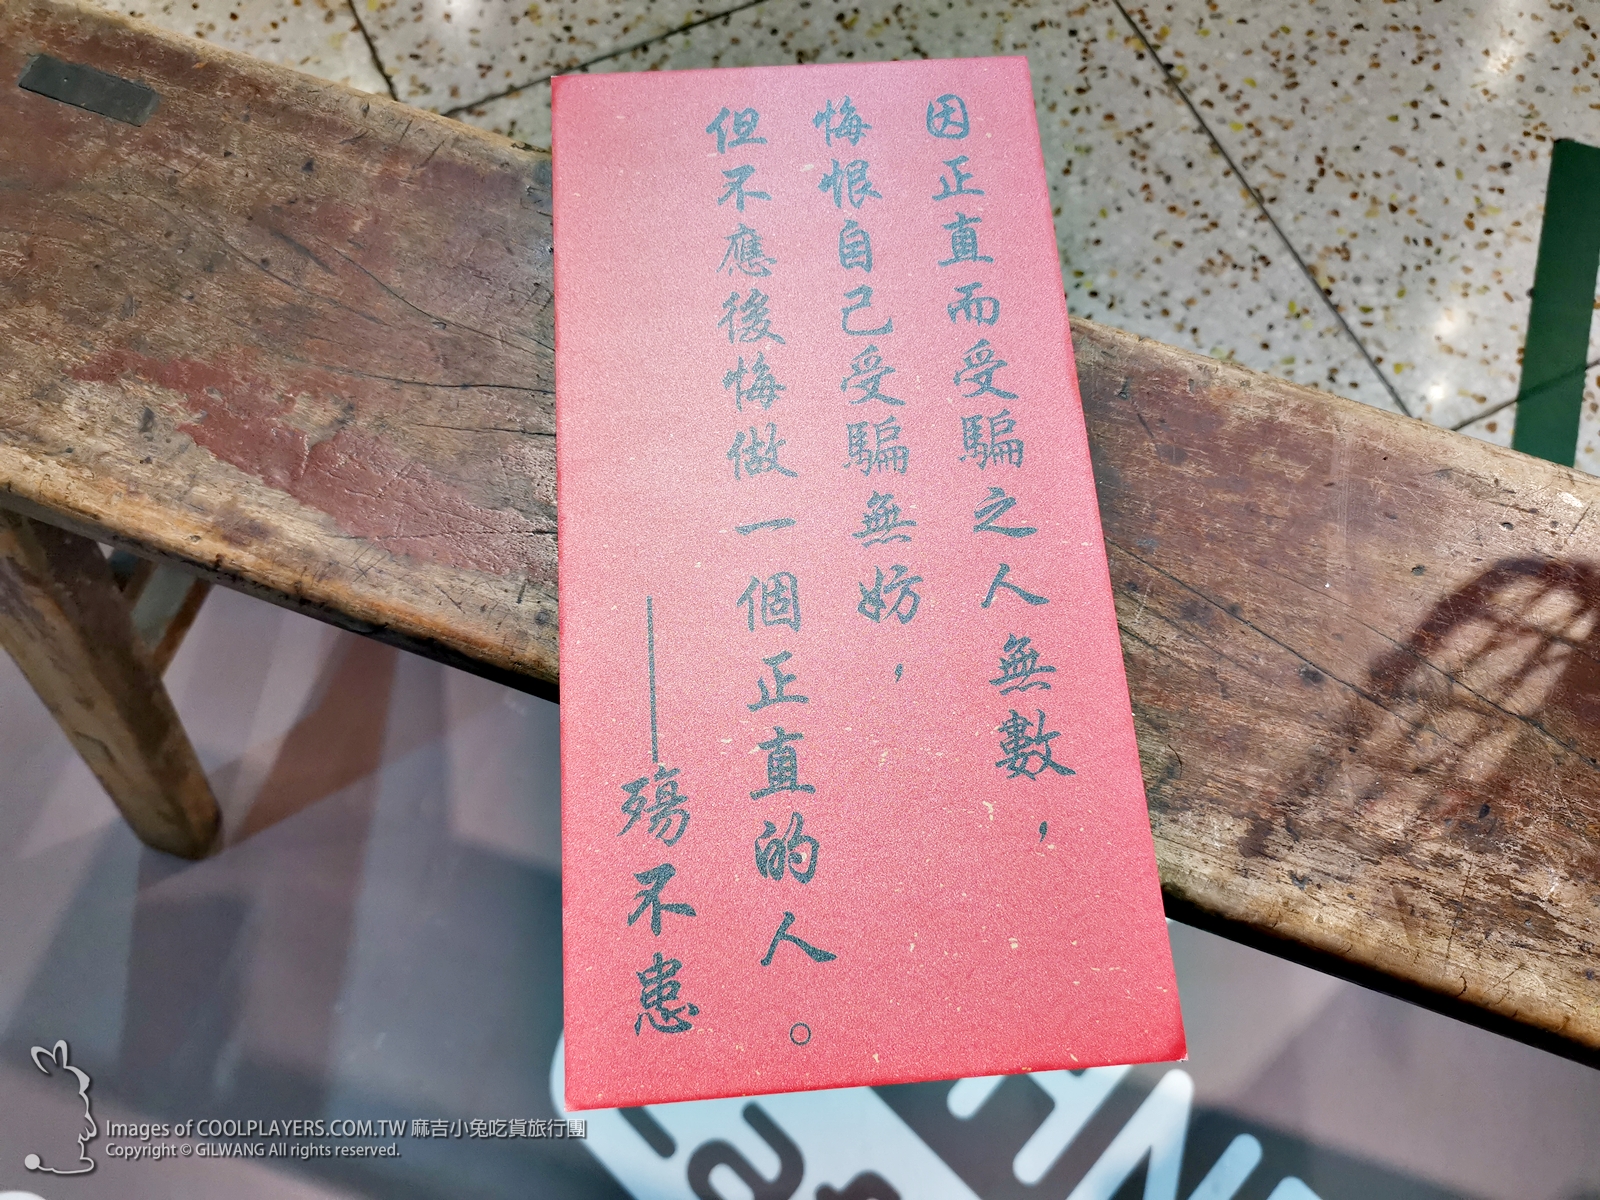 因正直而受騙之人無數，
悔恨自己受騙無妨，
但不應後悔做一個正直的人。
——殤不患
Images of COOLPLAYERS.COM.TW 麻吉小兔吃貨旅行團
Copyright © GILWANG All rights reserved.